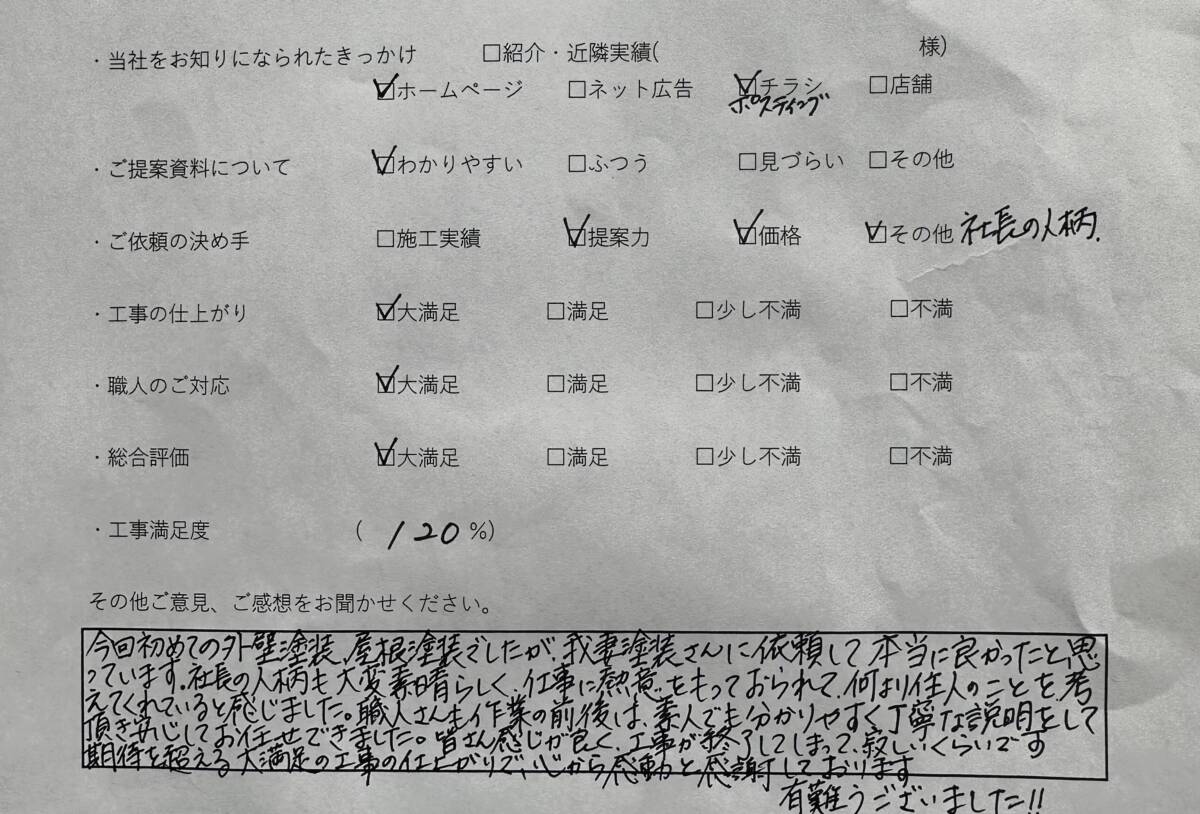 ・当社をお知りになられたきっかけ □紹介・近隣実績( 様)
☑ホームページ □ネット広告 ☑チラシ □店舗
ポスティング
・ご提案資料について ☑わかりやすい □ふつう □見づらい □その他
・ご依頼の決め手 □施工実績 ☑提案力 ☑価格 ☑その他 社長の人柄.
・工事の仕上がり ☑大満足 □満足 □少し不満 □不満
・職人のご対応 ☑大満足 □満足 □少し不満 □不満
・総合評価 ☑大満足 □満足 □少し不満 □不満
・工事満足度 ( 120 %)
その他ご意見、ご感想をお聞かせください。
今回初めての外壁塗装、屋根塗装でしたが、我妻塗装さんに依頼して本当に良かったと思
っています。社長の人柄も大変素晴らしく、仕事に熱意をもっておられて、何より住人のことを考
えてくれていると感じました。職人さんも作業の前後は、素人でも分かりやすく丁寧な説明をして
頂き安心してお任せできました。皆さん感じが良く、工事が終了してしまって、寂しいくらいです
期待を超える大満足の工事の仕上がりで心から感動と感謝しております
有難うございました!!